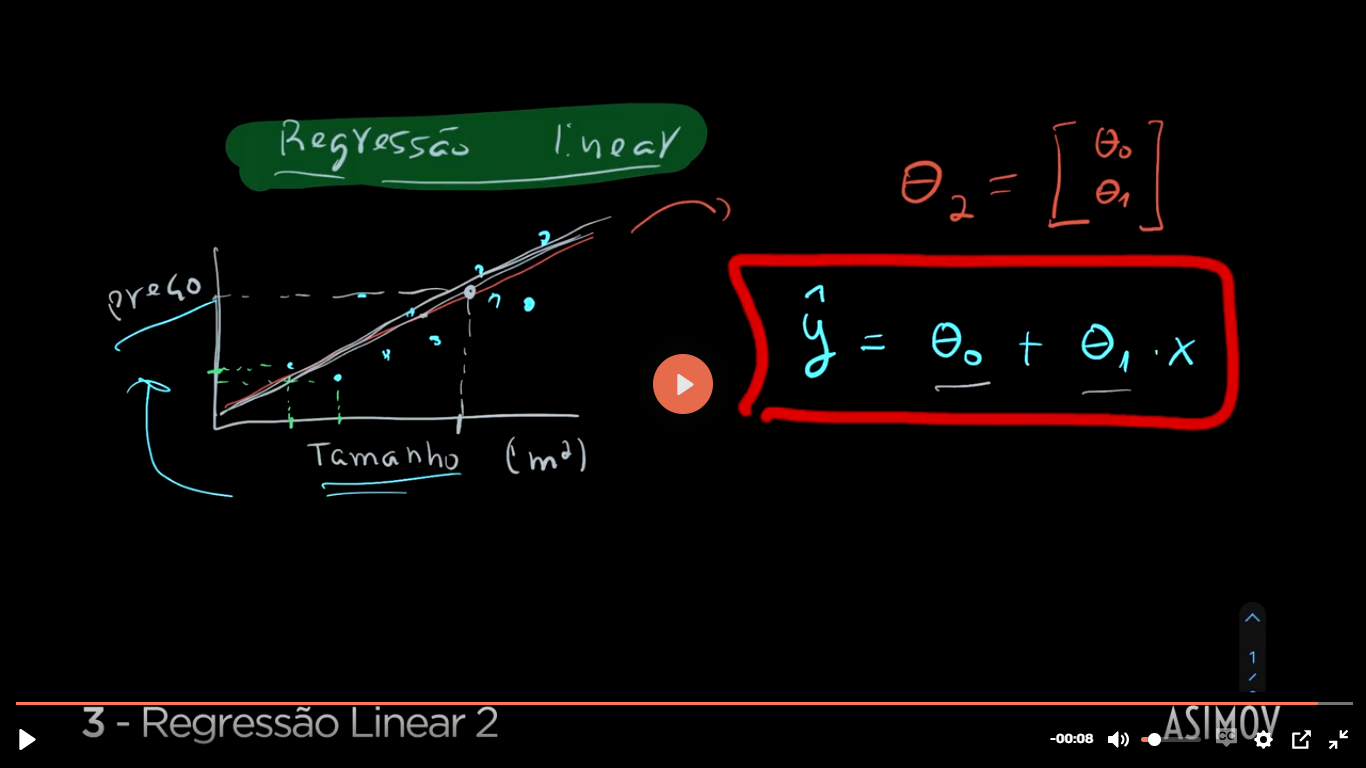 Regressão linear
θ₂ = [θ₀ θ₁]
preço
ŷ = θ₀ + θ₁ · x
Tamanho (m²)
1
3 - Regressão Linear 2
ASIMOV
-00:08
CC